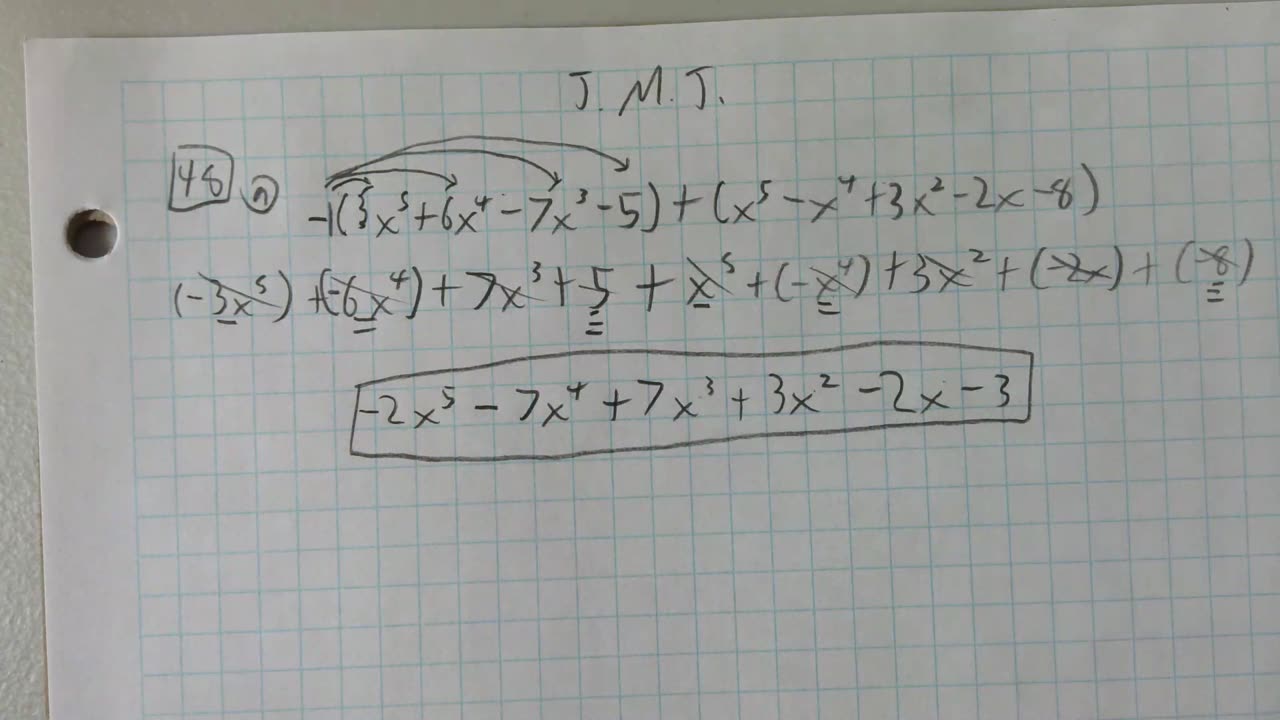 J. M. J.
48 n -1(3x⁵+6x⁴-7x³-5)+(x⁵-x⁴+3x²-2x-8)
(-3x⁵)+(-6x⁴)+7x³+5+x⁵+(-x⁴)+3x²+(-2x)+(-8)
-2x⁵-7x⁴+7x³+3x²-2x-3